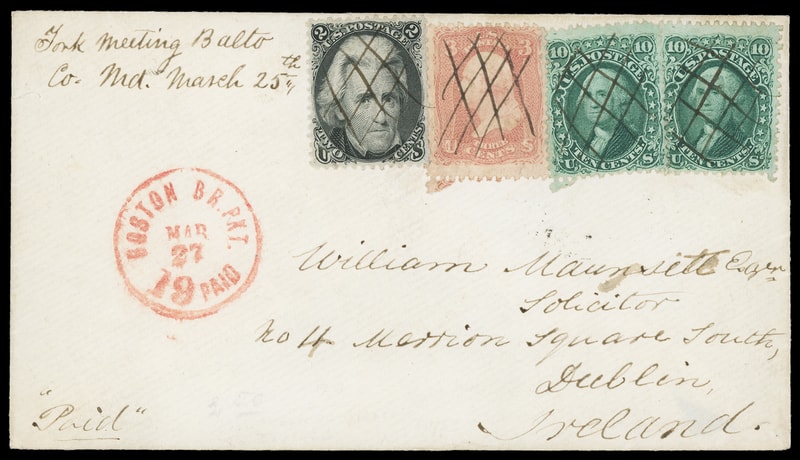 Fork meeting Balto
Co. Md. March 25th
2 U.S. POSTAGE 2
U TWO CENTS S
3 U.S. 3
U THREE CENTS S
10 U.S. POSTAGE 10
U TEN CENTS. S
10 U.S. POSTAGE 10
U TEN CENTS. S
BOSTON BR. PKT.
MAR
27
19 PAID
William Maunsell Esqr
Solicitor
No 4 Merrion Square South,
Dublin,
Ireland.
"Paid"